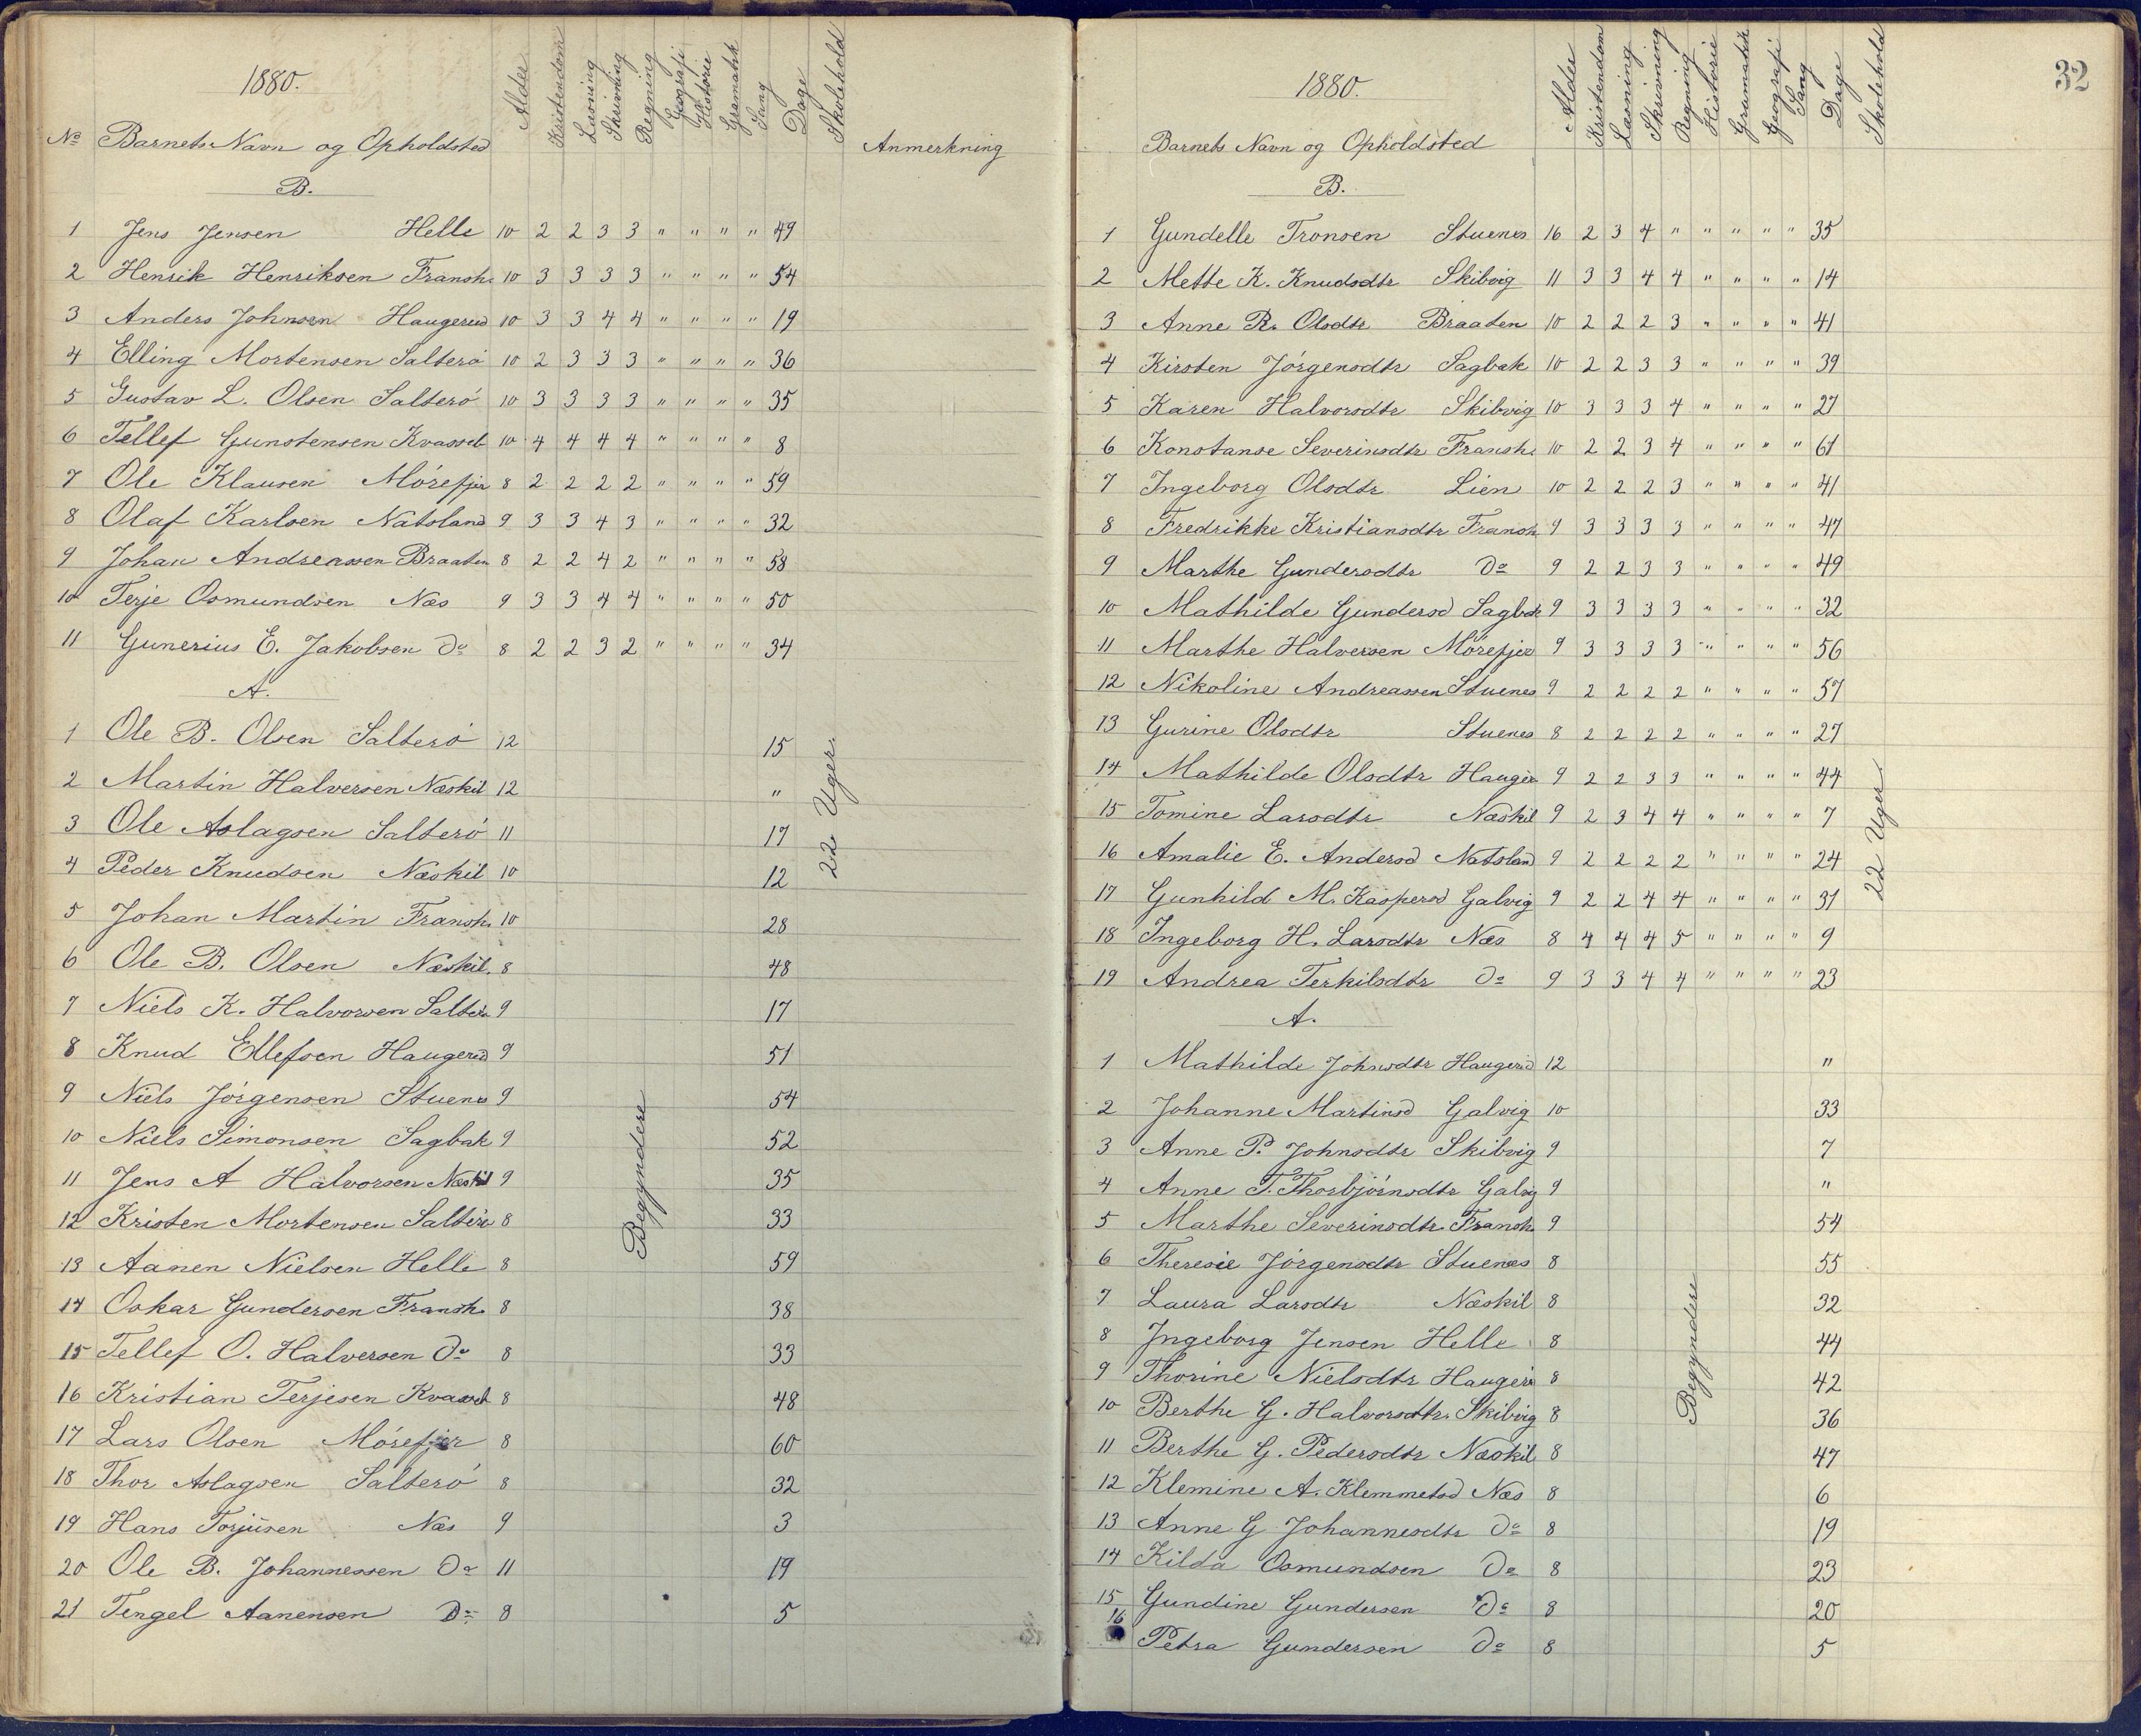 1880.
Nº Barnets Navn og Opholdsted Alder Kristendom Læsning Skrivning Regning Geografi Historie Gramatik Sang Dage Skolehold Anmerkning
B.
1 Jens Jensen Helle 10 2 2 3 3 " " " " 49
2 Henrik Henriksen Fransh. 10 3 3 3 3 " " " " 54
3 Anders Johnsen Haugerud 10 3 3 4 4 " " " " 19
4 Elling Mortensen Salterö 10 2 3 3 3 " " " " 36
5 Gustav L. Olsen Salterö 10 3 3 3 3 " " " " 35
6 Tellef Gunstensen Kvassel 10 4 4 4 4 " " " " 8
7 Ole Klausen Mörefjer 8 2 2 2 2 " " " " 59
8 Olaf Karlsen Natsland 9 3 3 4 3 " " " " 32
9 Johan Andreassen Braaten 8 2 2 4 2 " " " " 58
10 Terje Osmundsen Næs 9 3 3 4 4 " " " " 50
11 Gunerius E. Jakobsen do 8 2 2 3 2 " " " " 34
A.
1 Ole B. Olsen Salterö 12 15
2 Martin Halversen Næskil 12 "
3 Ole Aslagsen Salterö 11 17
4 Peder Knudsen Næskil 10 12
5 Johan Martin Fransh. 10 28
6 Ole B. Olsen Næskil. 8 48
7 Niels K. Halvorsen Salterö 9 17
8 Knud Ellefsen Haugerud 9 51
9 Niels Jörgensen Stuenes 9 54
10 Niels Simonsen Sagbak 9 52
11 Jens A Halvorsen Næskil 9 35
12 Kristen Mortensen Salterö 8 33
13 Aanen Nielsen Helle 8 59
14 Oskar Gundersen Fransh. 8 38
15 Tellef O. Halversen do 8 33
16 Kristian Terjesen Kvassel 8 48
17 Lars Olsen Mörefjer 8 60
18 Thor Aslagsen Salterö 8 32
19 Hans Torjusen Næs 9 3
20 Ole B. Johannessen do 11 19
21 Tengel Aanensen do 8 5
Begyndere
22 Uger.
32
1880.
Barnets Navn og Opholdsted Alder Kristendom Læsning Skrivning Regning Historie Gramatik Geografi Sang Dage Skolehold
B.
1 Gundelle Tronsen Stuenes 16 2 3 4 " " " " " 35
2 Mette K. Knudsdtr Skibvig 11 3 3 4 4 " " " " 14
3 Anne R. Olsdtr Braaten 10 2 2 2 3 " " " " 41
4 Kirsten Jörgensdtr Sagbak 10 2 2 3 3 " " " " 39
5 Karen Halvorsdtr Skibvig 10 3 3 3 4 " " " " 27
6 Konstanse Severinsdtr Fransh. 10 2 2 3 4 " " " " 61
7 Ingeborg Olsdtr Lien 10 2 2 2 3 " " " " 41
8 Fredrikke Kristiansdtr Fransh. 9 3 3 3 3 " " " " 47
9 Marthe Gundersdtr do 9 2 2 3 3 " " " " 49
10 Mathilde Gundersd Sagbak 9 3 3 3 3 " " " " 32
11 Marthe Halversen Mörefjer 9 3 3 3 3 " " " " 56
12 Nikoline Andreassen Stuenes 9 2 2 2 2 " " " " 57
13 Gurine Olsdtr Stuenes 8 2 2 2 2 " " " " 27
14 Mathilde Olsdtr Hauger 9 2 2 3 3 " " " " 44
15 Tomine Larsdtr Næskil 9 2 3 4 4 " " " " 7
16 Amalie E. Andersd Natsland 9 2 2 2 2 " " " " 24
17 Gunhild M. Kaspersd Galvig 9 2 2 4 4 " " " " 31
18 Ingeborg H. Larsdtr Næs 8 4 4 4 5 " " " " 9
19 Andrea Terkilsdtr do 9 3 3 4 4 " " " " 23
A.
1 Mathilde Johnsdtr Haugerud 12 "
2 Johanne Martinsd Galvig 10 33
3 Anne P. Johnsdtr Skibvig 9 7
4 Anne T. Thorbjörnsdtr Galvig 9 "
5 Marthe Severinsdtr Fransh 9 54
6 Theresie Jörgensdtr Stuenes 8 55
7 Laura Larsdtr Næskil 8 32
8 Ingeborg Jensen Helle 8 44
9 Thorine Nielsdtr Haugeru 8 42
10 Berthe G. Halvorsdtr. Skibvig 8 36
11 Berthe G. Pedersdtr Næskil 8 47
12 Klemine A. Klemmetsd Næs 8 6
13 Anne G Johannesdtr do 8 19
14 Kilda Osmundsen do 8 23
15 Gundine Gundersen do 8 20
16 Petra Gundersen do 8 5
Begyndere
22 Uger.